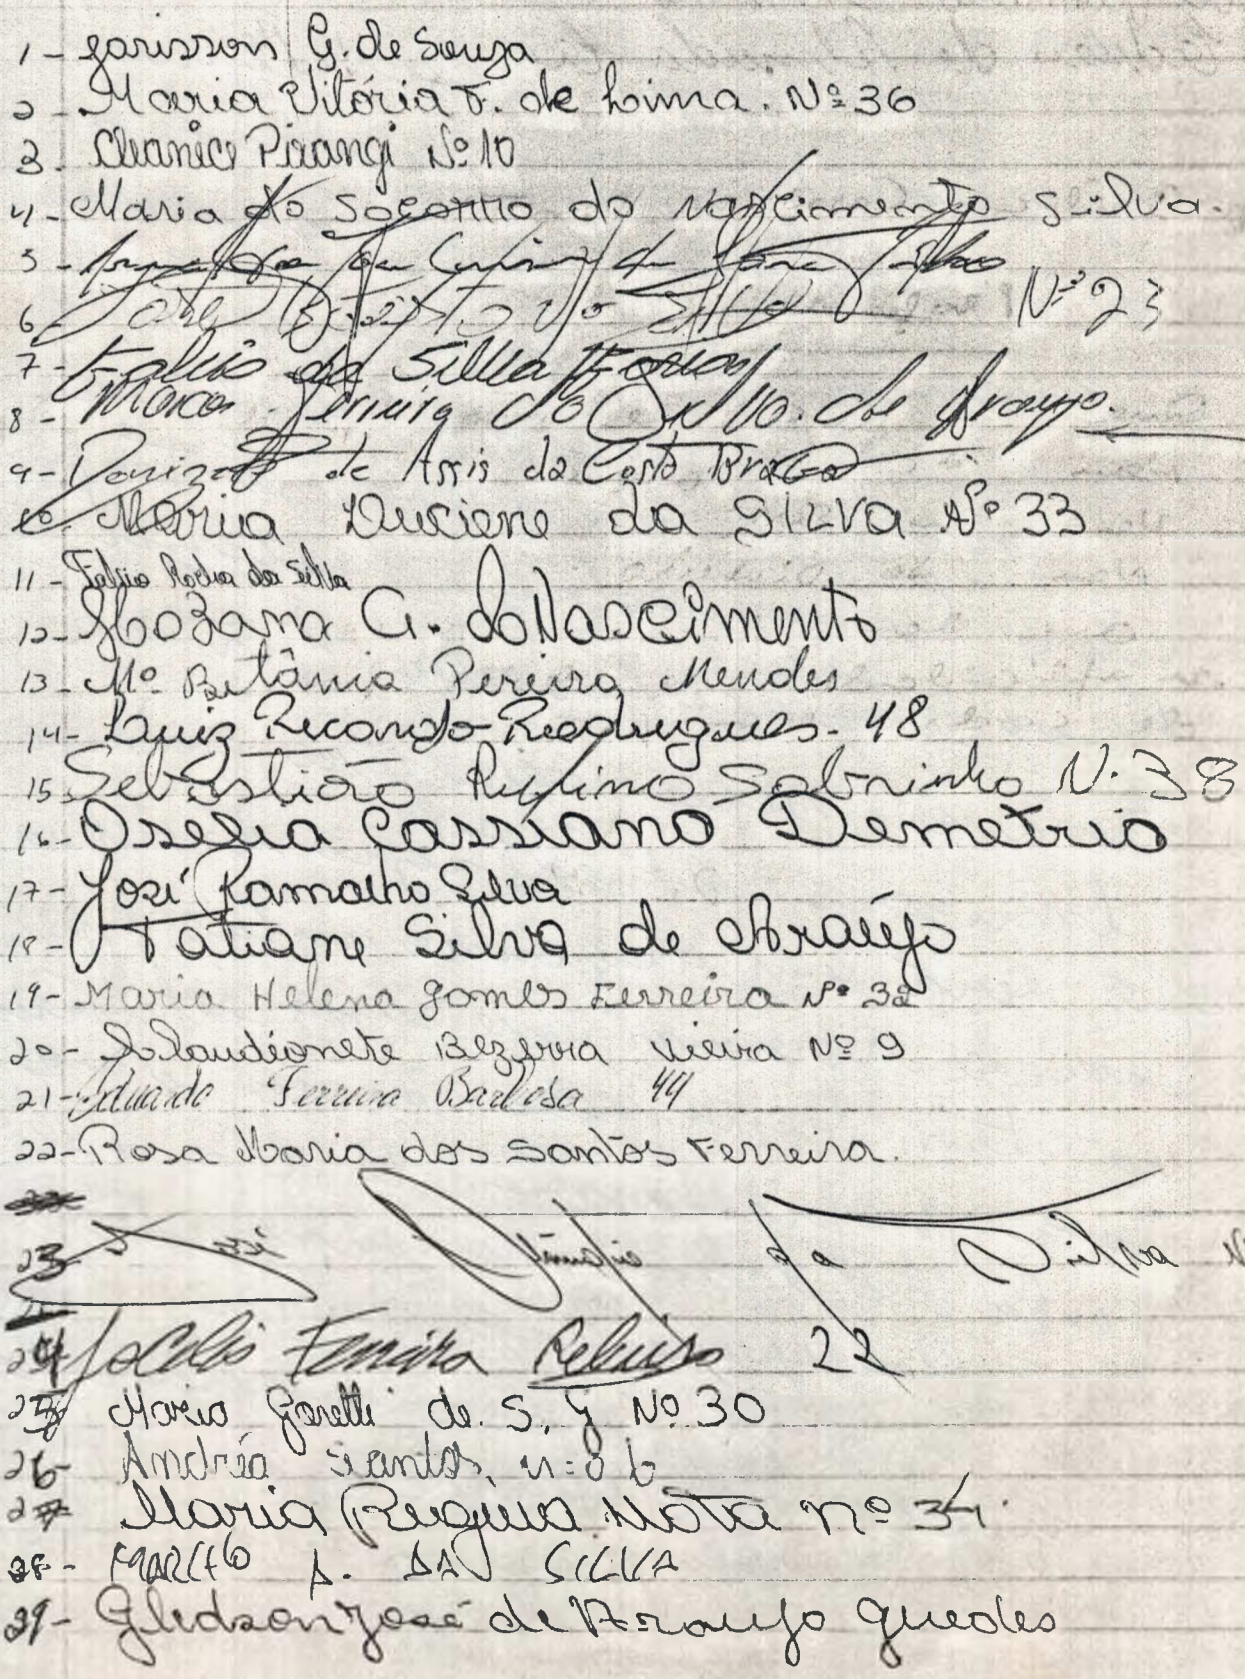 1- Jarisson G. de Souza
2- Maria Vitória F. de Lima. Nº 36
3. Cleanice Pirangi Nº 10
4- Maria do Socorro do Nascimento Silva.
5-
6- José do Silva Nº 23
7- Fabio da Silva Farias
8- Marcos Ferreira do de Araujo.
9- Donizete de Assis da Costa Braga
10. Maria Luciene da SILVA Nº 33
11- Fabio Rocha da Silva
12- G. do Nascimento
13- Mº Betânia Pereira Mendes
14- Luiz Ricardo Rodrigues. 48
15. Sebastião Rufino Sobrinho N. 38
16- Oselia Cassiano Demetrio
17- José Ramalho Silva
18- Tatiane Silva de Araújo
19- Maria Helena Gomes Ferreira Nº 32
20- Claudionete Bezerra Vieira Nº 9
21- Eduardo Ferreira Barbosa 44
22- Rosa Maria dos Santos Ferreira.
23 José da Silva N
24 Ferreira 22
25 Maria Goretti de. S. G Nº 30
26- Andréa Santos, n=06
27 Maria Regina Mota nº 34.
28- MARCIO A. DA SILVA
29- Gledson José de Araujo guedes